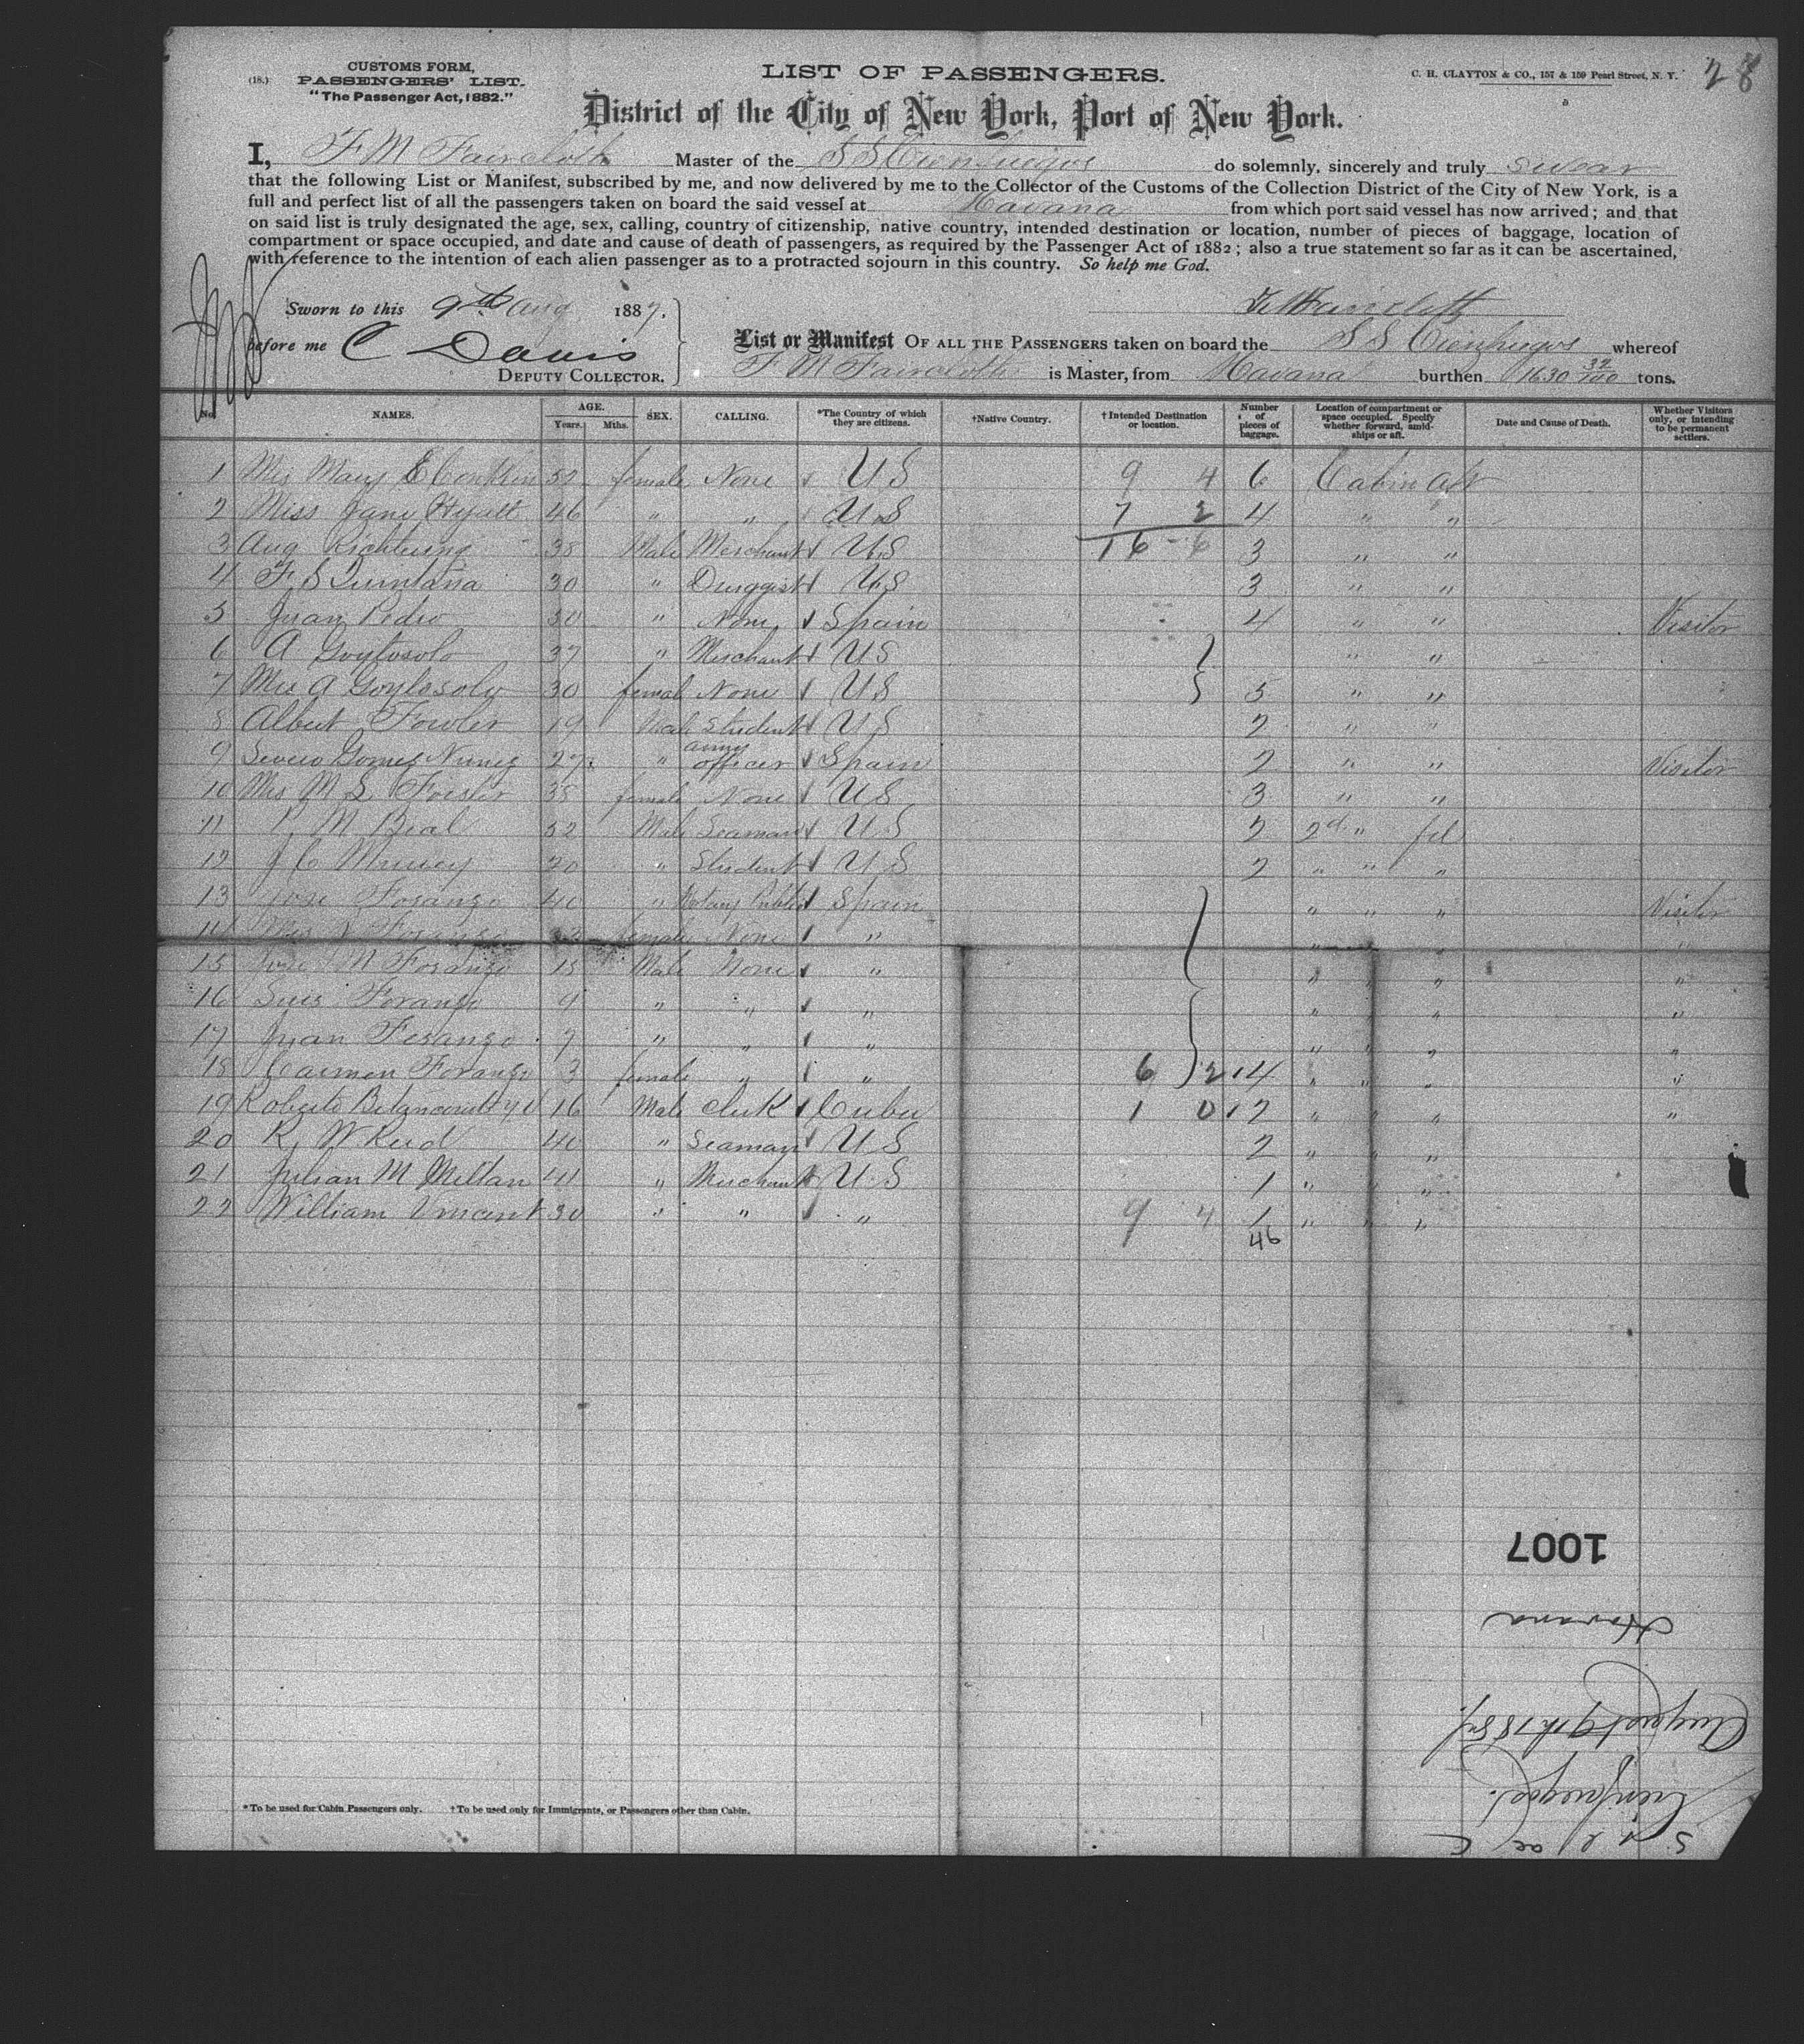 28
(18.)
CUSTOMS FORM,
PASSENGERS' LIST.
"The Passenger Act, 1882."
LIST OF PASSENGERS.
C. H. CLAYTON & CO., 157 & 159 Pearl Street, N. Y.
District of the City of New York, Port of New York.
I, F M Faircloth Master of the S S Cienfuegos do solemnly, sincerely and truly swear
that the following List or Manifest, subscribed by me, and now delivered by me to the Collector of the Customs of the Collection District of the City of New York, is a
full and perfect list of all the passengers taken on board the said vessel at Havana from which port said vessel has now arrived; and that
on said list is truly designated the age, sex, calling, country of citizenship, native country, intended destination or location, number of pieces of baggage, location of
compartment or space occupied, and date and cause of death of passengers, as required by the Passenger Act of 1882; also a true statement so far as it can be ascertained,
with reference to the intention of each alien passenger as to a protracted sojourn in this country. So help me God.
Sworn to this 9th Aug 1887.
before me C Davis
DEPUTY COLLECTOR.
F M Faircloth
List or Manifest OF ALL THE PASSENGERS taken on board the S S Cienfuegos whereof
F M Faircloth is Master, from Havana burthen 1630 32/100 tons.
No. NAMES. AGE. Years. Mths. SEX. CALLING. *The Country of which they are citizens. †Native Country. †Intended Destination or location. Number of pieces of baggage. Location of compartment or space occupied. Specify whether forward, amidships or aft. Date and Cause of Death. Whether Visitors only, or intending to be permanent settlers.
1 Mrs Mary E Conklin 52 female None U S 9 4 6 Cabin aft
2 Miss Jane Hyatt 46 " " U.S 7 2 4 " "
3 Aug Richtung 38 Male Merchant U.S 16 - 6 3 " "
4 F S Quintana 30 " Druggist U.S 3 " "
5 Juan Pedro 30 " None Spain 4 " " Visitor
6 A 37 " Merchant U S " "
7 Mrs A 30 femal None U S 5 " "
8 Albert Fowler 19 Male Student U S 2 " "
9 Severo Gomez Nunez 27 " army officer Spain 2 " " Visitor
10 Mrs M S Forster 35 female None U S 3 " "
11 M Beal 52 Male Seaman U S 2 2d "
12 J C 20 " Student U S 2 " " "
13 Jose 40 " Notary Public Spain " " " Visitor
14 Mrs female None " " " " "
15 Jose M 15 Male None " " " " "
16 Luis 9 " " " " " " "
17 Juan 7 " " " " " " "
18 Carmen 3 female " " 6 2 14 " " " "
19 Roberto Betancourt 16 Male Clerk Cuba 1 0 2 " " " "
20 R W Reid 40 " Seaman U S 2 " " "
21 Julian M Millan 41 " Merchant U.S 1 " " "
22 William Vincent 30 " " " 9 4 1 " " "
46
1007
Havana
August 9th 1887.
Cienfuegos.
*To be used for Cabin Passengers only. †To be used only for Immigrants, or Passengers other than Cabin.